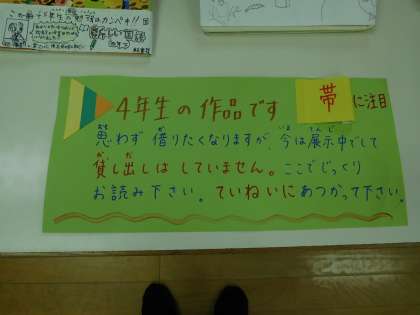 4年生の作品です 帯に注目
思わず借りたくなりますが、今は展示中でして
貸し出しはしていません。ここでじっくり
お読み下さい。ていねいにあつかって下さい。